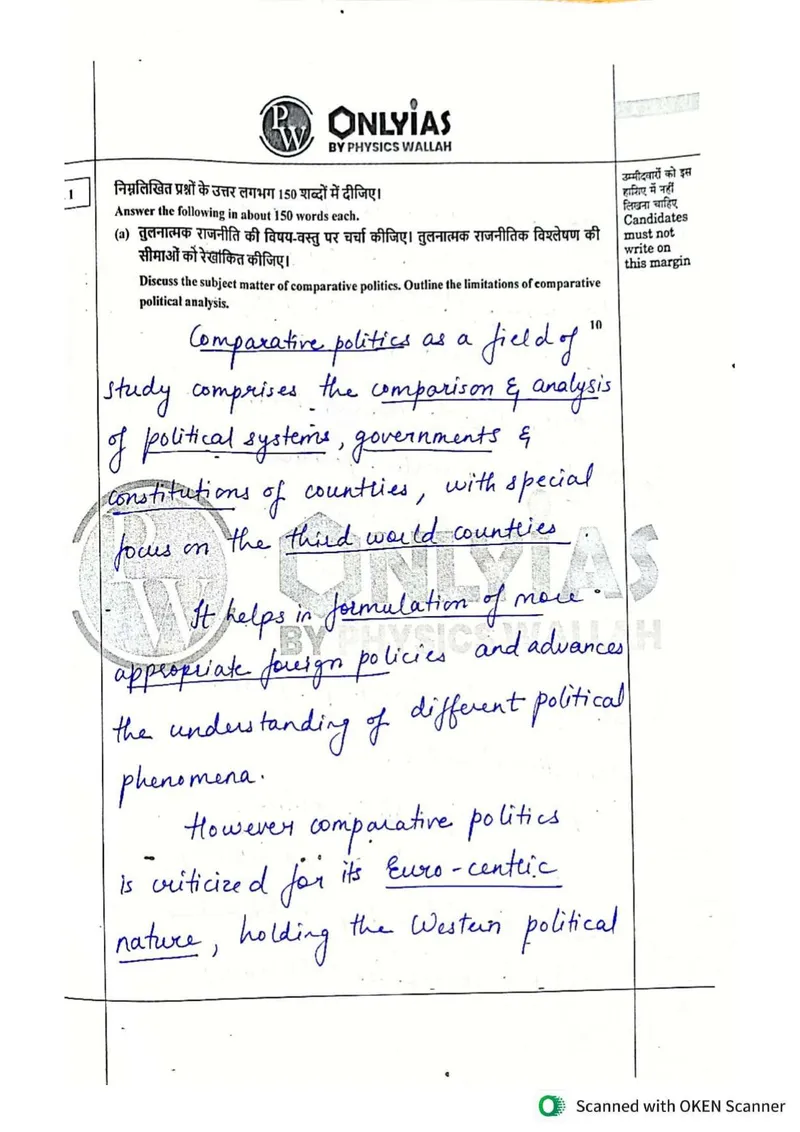 PW ONLYIAS
BY PHYSICS WALLAH
1
निम्नलिखित प्रश्नों के उत्तर लगभग 150 शब्दों में दीजिए।
Answer the following in about 150 words each.
(a) तुलनात्मक राजनीति की विषय-वस्तु पर चर्चा कीजिए। तुलनात्मक राजनीतिक विश्लेषण की
सीमाओं को रेखांकित कीजिए।
Discuss the subject matter of comparative politics. Outline the limitations of comparative
political analysis.
10
उम्मीदवारों को इस
हाशिए में नहीं
लिखना चाहिए
Candidates
must not
write on
this margin
Comparative politics as a field of
study comprises the comparison & analysis
of political systems, governments &
constitutions of countries, with special
focus on the third world countries.
It helps in formulation of more
appropriate foreign policies and advances
the understanding of different political
phenomena.
However comparative politics
is criticized for its Euro-centric
nature, holding the Western political
PW ONLYIAS
BY PHYSICS WALLAH
Scanned with OKEN Scanner